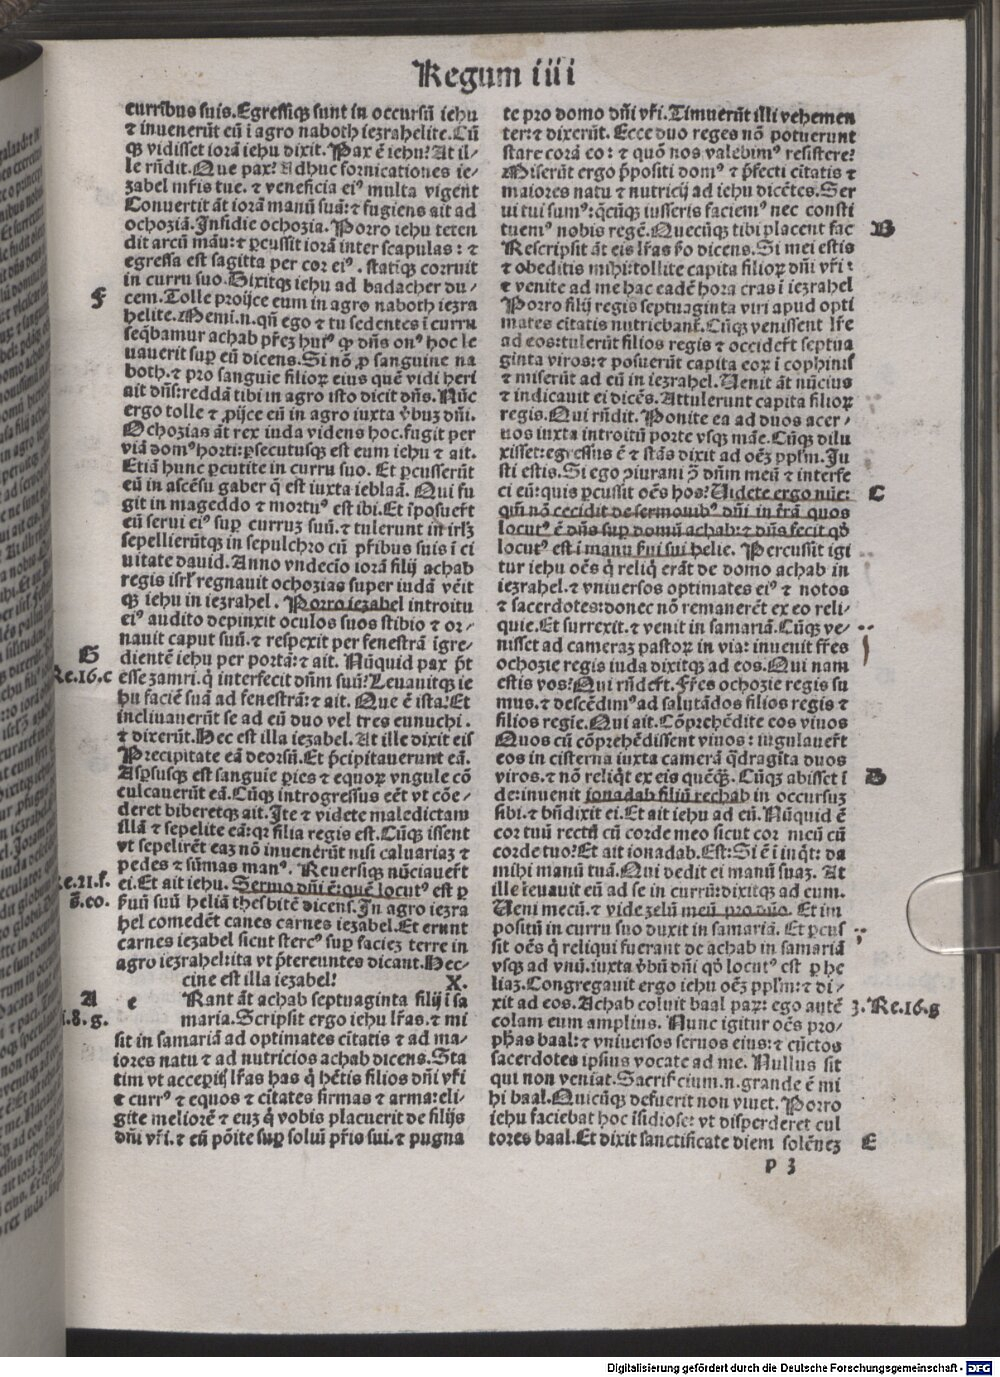 Regum iiii
curribus suis. Egressiqꝫ sunt in occursũ iehu
⁊ inuenerũt eũ ĩ agro naboth iezrahelite. Cũ
qꝫ vidisset iorã iehu dixit. Pax ẽ iehu? At il⸗
le rñdit. Que pax? Adhuc fornicationes ie⸗
zabel mr̃is tue. ⁊ veneficia ei⁹ multa vigent
Conuertit ãt iorã manũ suã: ⁊ fugiens ait ad
ochoziã. Insidie ochozia. Porro iehu teten
dit arcũ mãu: ⁊ ꝑcussit iorã inter scapulas: ⁊
egressa est sagitta per cor ei⁹. statiqꝫ corruit
in curru suo. Dixitqꝫ iehu ad badacher du⸗
F
cem. Tolle proijce eum in agro naboth iezra
helite. Memi .n. qñ ego ⁊ tu sedentes ĩ curru
seq̃bamur achab pr̃eꝫ hui⁹ ꝙ dñs on⁹ hoc le
uauerit suꝑ eũ dicens. Si nõ ꝓ sanguine na
both. ⁊ pro sanguie filioꝝ eius quẽ vidi heri
ait dñs: reddã tibi in agro isto dicit dñs. Nũc
ergo tolle ⁊ ꝓijce eũ in agro iuxta v̓buꝫ dñi.
Ochozias ãt rex iuda videns hoc. fugit per
viã dom⁹ horti: ꝑsecutusqꝫ est eum iehu ⁊ ait.
Etiã hunc ꝑcutite in curru suo. Et ꝑcusserũt
eũ in ascẽsu gaber q̃ est iuxta ieblaã. Qui fu
git in mageddo ⁊ mortu⁹ est ibi. Et ĩposuer̃t
eũ serui ei⁹ suꝑ curruꝫ suũ. ⁊ tulerunt in irl̃ꝫ
sepellierũtqꝫ in sepulchro cũ pr̃ibus suis ĩ ci
uitate dauid. Anno vndecio iorã filij achab
regis isrl̃ regnauit ochozias super iudã vẽit
qꝫ iehu in iezrahel. Porro iezabel introitu
ei⁹ audito depinxit oculos suos stibio ⁊ or⸗
nauit caput suũ. ⁊ respexit per fenestrã ĩgre⸗
G
dientẽ iehu per portã: ⁊ ait. Nũquid pax p̃t
Re.16.c
esse zamri. q̃ interfecit dñm suũ? Leuauitqꝫ ie
hu faciẽ suã ad fenestrã: ⁊ ait. Que ẽ ista? Et
inclinauerũt se ad eũ duo vel tres eunuchi.
⁊ dixerũt. Hec est illa iezabel. At ille dixit eis
Precipitate eã deorsũ. Et p̃cipitauerunt eã.
Asꝑsusqꝫ est sanguie ꝑies ⁊ equoꝝ vngule cõ
culcauerũt eã. Cũqꝫ introgressus eẽt vt cõe⸗
deret biberetqꝫ ait. Ite ⁊ videte maledictam
illã ⁊ sepelite eã: qꝛ filia regis est. Cũqꝫ issent
vt sepelirẽt eaꝫ nõ inuenẽrũt nisi caluariaꝫ ⁊
pedes ⁊ sũmas man⁹. Reuersiqꝫ nũciauer̃t
Re.21.f.
ei. Et ait iehu. Sermo dñi ẽ: quẽ locut⁹ est ꝑ
s̃.eo.
s̃uũ suũ heliã thesbitẽ dicens. In agro iezra
hel comedẽt canes carnes iezabel. Et erunt
carnes iezabel sicut sterc⁹ suꝑ facieꝫ terre in
agro iezrahel: ita vt p̃tereuntes dicant. Hec⸗
cine est illa iezabel! X.
A
e Rant ãt achab septuaginta filij ĩ sa
i.8.g.
maria. Scripsit ergo iehu lr̃as. ⁊ mi
sit in samariã ad optimates citatis ⁊ ad ma⸗
iores natu ⁊ ad nutricios achab dicens. Sta
tim vt acceperitis lr̃as has q̃ hẽtis filios dñi vr̃i
⁊ curr⁹ ⁊ equos ⁊ citates firmas ⁊ arma: eli⸗
gite meliorẽ ⁊ euꝫ q̃ vobis placuerit de filijs
dñi vr̃i. ⁊ eũ põite suꝑ soliũ pr̃is sui. ⁊ pugna
te pro domo dñi vr̃i. Timuerũt illi vehemen
ter: ⁊ dixerũt. Ecce duo reges nõ potuerunt
stare corã eo: ⁊ quõ nos valebim⁹ resistere?
Miserũt ergo p̃positi dom⁹ ⁊ p̃fecti citatis ⁊
maiores natu ⁊ nutricij ad iehu dicẽtes. Ser
ui tui sum⁹: q̃cũqꝫ iusseris faciem⁹ nec consti
tuem⁹ nobis regẽ. Quecũqꝫ tibi placent fac
B
Rescripsit ãt eis lr̃as s̃o dicens. Si mei estis
⁊ obeditis mihi: tollite capita filioꝝ dñi vr̃i:
⁊ venite ad me hac eadẽ hora cras ĩ iezrahel
Porro filij regis septuaginta viri apud opti
mates citatis nutriebant̃. Cũqꝫ venissent lr̃e
ad eos: tulerũt filios regis ⁊ occider̃t septua
ginta viros: ⁊ posuerũt capita eoꝝ ĩ cophinis
⁊ miserũt ad eũ in iezrahel. Uenit ãt nũcius
⁊ indicauit ei dicẽs. Attulerunt capita filioꝝ
regis. Qui rñdit. Ponite ea ad duos acer⸗
uos iuxta introitũ porte vsqꝫ mãe. Cũqꝫ dilu
xisset: egressus ẽ ⁊ stãs dixit ad oẽꝫ pplm̃. Ju
sti estis. Si ego ꝯiurani ꝯ̃ dñm meũ ⁊ interfe
ci eũ: quis ꝑcussit oẽs hos? Uidete ergo nũc:
C
qm̃ nõ cecidit de sermonib⁹ dñi in tr̃ã quos
locut⁹ ẽ dñs suꝑ domũ achab: ⁊ dñs fecit qõ
locut⁹ est ĩ manu s̃ui sui helie. Percussit igi
tur iehu oẽs q̃ reliq̃ erãt de domo achab in
iezrahel. ⁊ vniuersos optimates ei⁹ ⁊ notos
⁊ sacerdotes: donec nõ remanerẽt ex eo reli⸗
quie. Et surrexit. ⁊ venit in samariã. Cũqꝫ ve⸗
nisset ad cameraꝫ pastoꝝ in via: inuenit fr̃es
ochozie regis iuda dixitqꝫ ad eos. Qui nam
estis vos? Qui rñder̃t. Fr̃es ochozie regis su
mus. ⁊ descẽdim⁹ ad salutãdos filios regis ⁊
filios regie. Qui ait. Cõprehẽdite eos viuos
Quos cũ cõprehẽdissent viuos: iugulauer̃t
eos in cisterna iuxta camerã q̃dragĩta duos
viros. ⁊ nõ reliq̃t ex eis quẽq̃. Cũqꝫ abisset ĩ
D
de: inuenit ionadab filiũ rechab in occursuꝫ
sibi. ⁊ bñdixit ei. Et ait iehu ad eũ. Nũquid ẽ
cor tuũ rectũ cũ corde meo sicut cor meũ cũ
corde tuo? Et ait ionadab. Est: Si ẽ ĩ inq̃t: da
mihi manũ tuã. Qui dedit ei manũ suaꝫ. At
ille leuauit eũ ad se in currũ: dixitqꝫ ad eum.
Ueni mecũ. ⁊ vide zelũ meũ pro dño. Et im
positũ in curru suo duxit in samariã. Et ꝑcus
sit oẽs q̃ reliqui fuerant de achab in samariã
vsqꝫ ad vnũ. iuxta v̓bũ dñi qõ locut⁹ est ꝑ he
liaꝫ. Congregauit ergo iehu oẽꝫ pplm̃: ⁊ di⸗
xit ad eos. Achab coluit baal paꝝ: ego autẽ
3.Re.16.g
colam eum amplius. Nunc igitur oẽs pro⸗
phas baal: ⁊ vniuersos seruos eius: ⁊ cũctos
sacerdotes ipsius vocate ad me. Nullus sit
qui non veniat. Sacrificium .n. grande ẽ mi
hi baal. Quicũqꝫ defuerit non viuet. Porro
iehu faciebat hoc ĩsidiose: vt disperderet cul
tores baal. Et dixit sanctificate diem solẽneꝫ
E
p 3
Digitalisierung gefördert durch die Deutsche Forschungsgemeinschaft - DFG